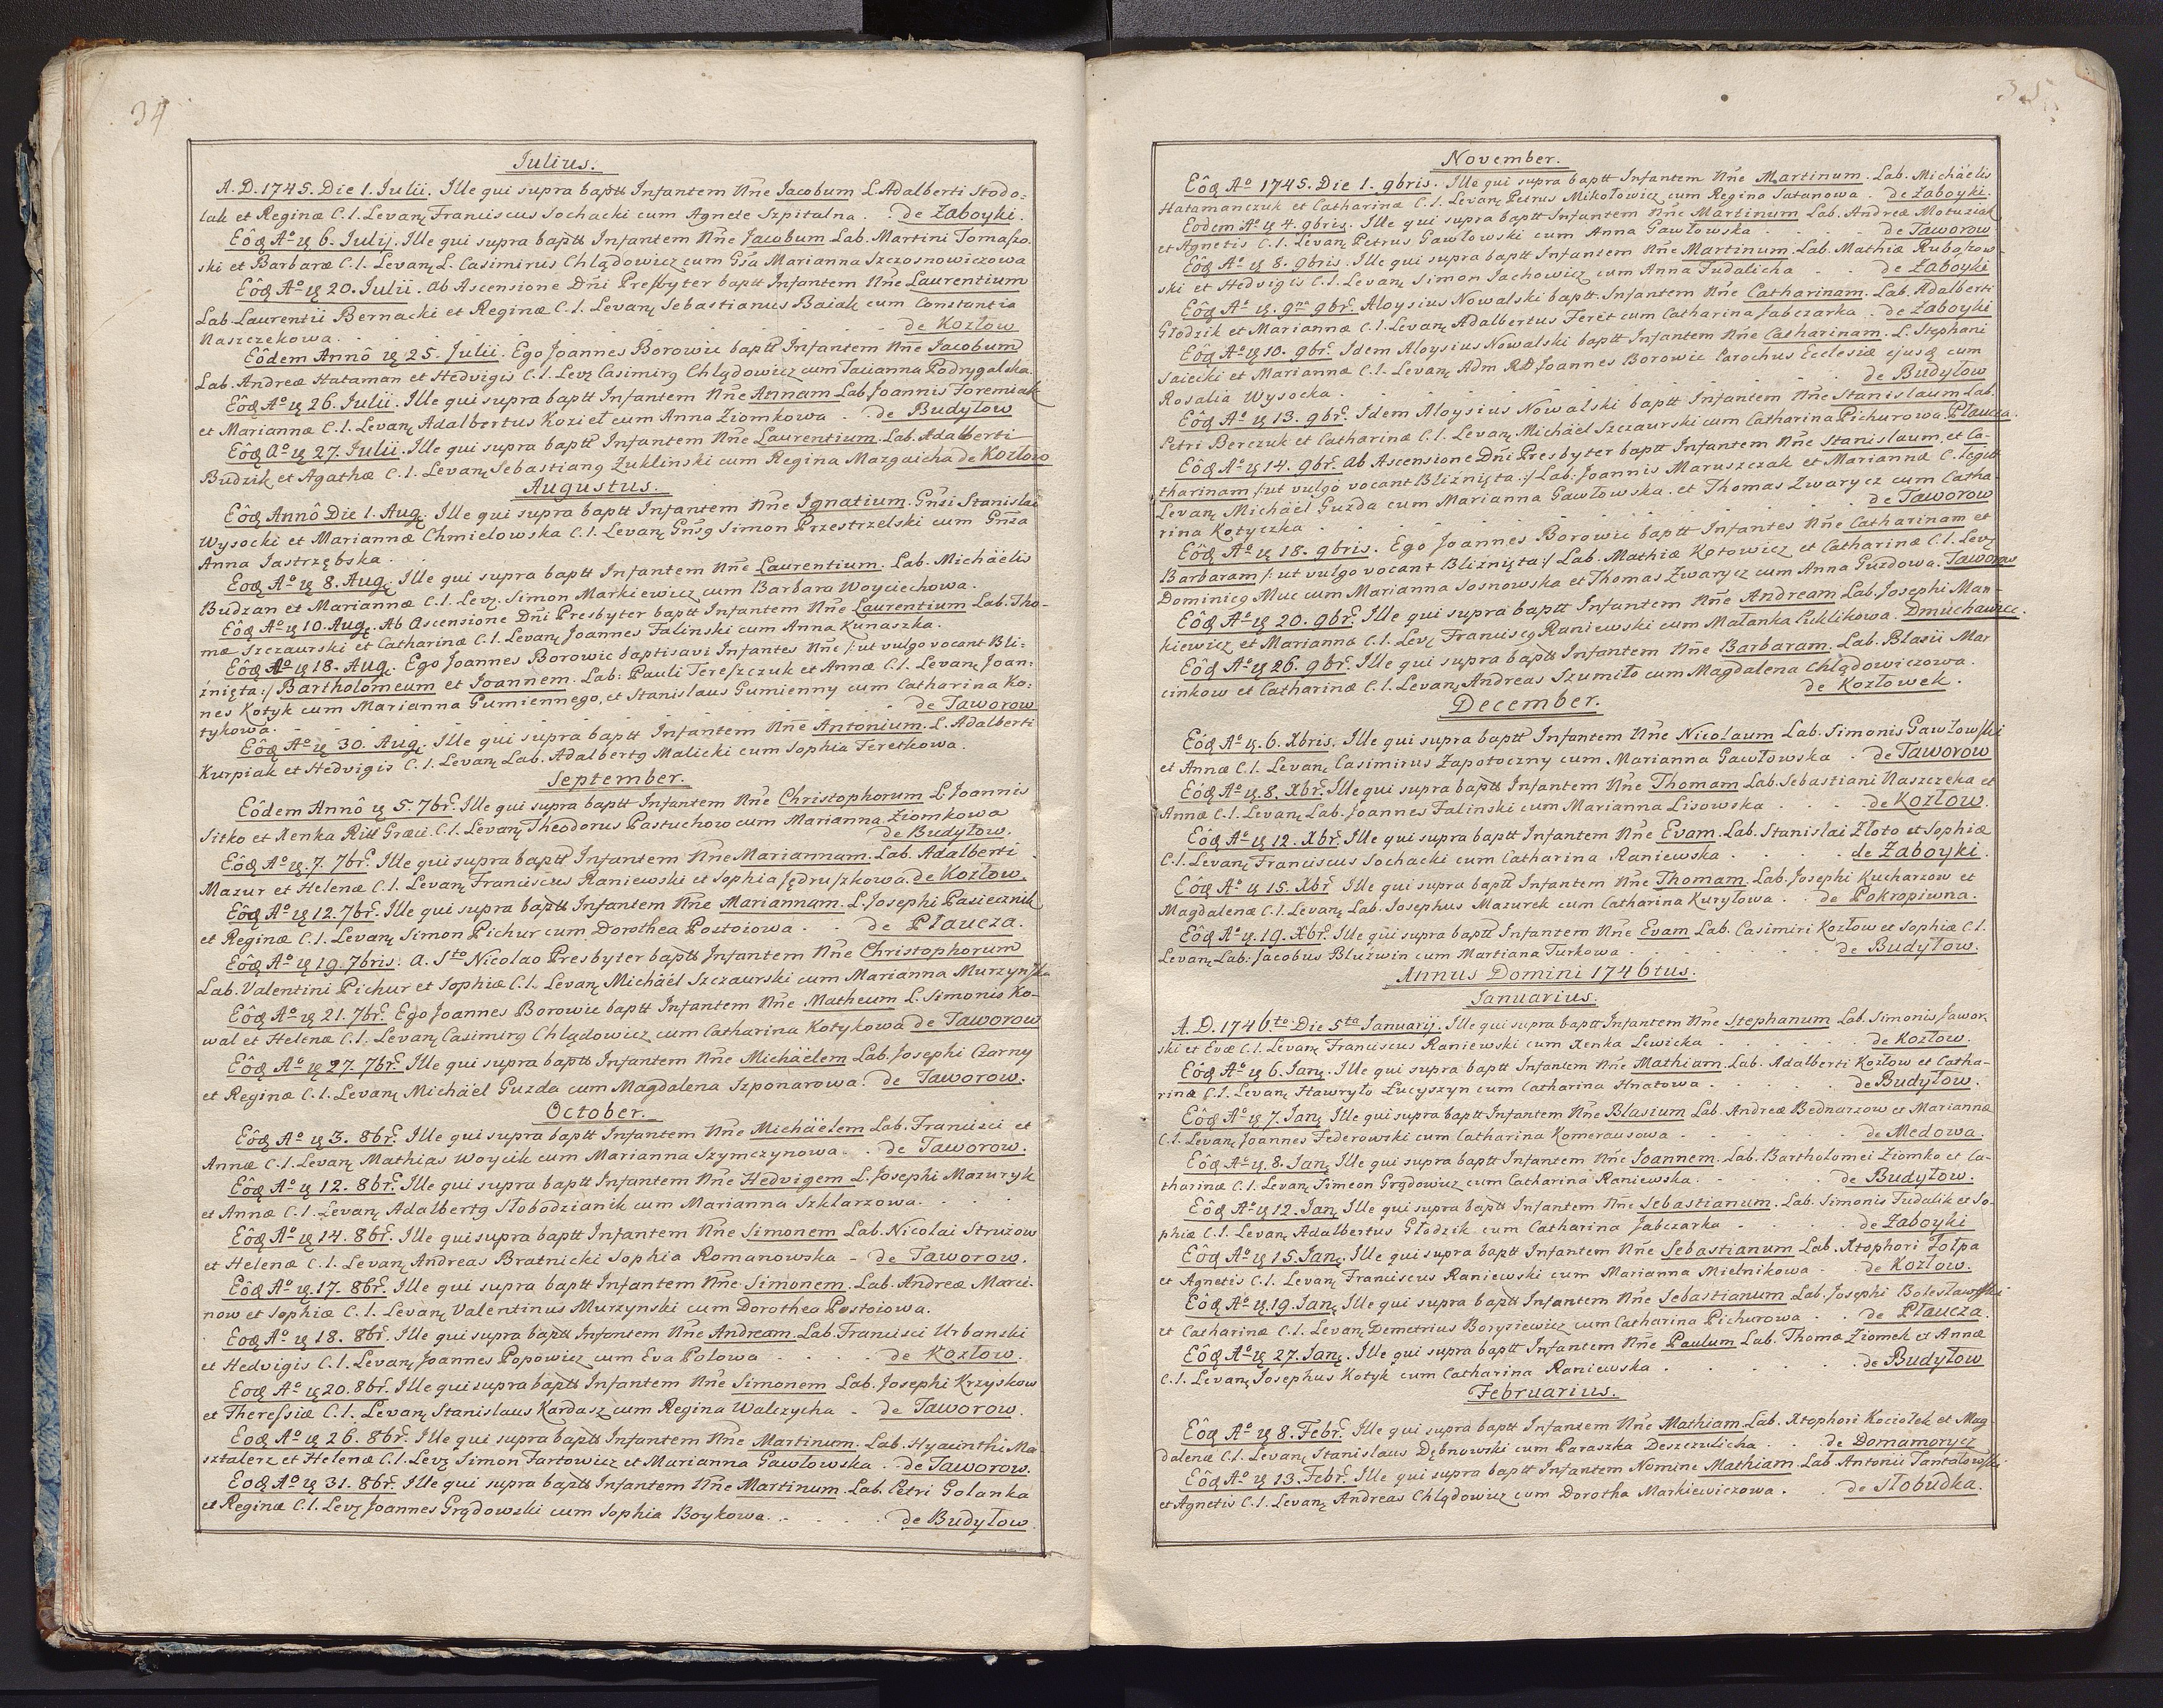 34
Iulius.
A. D. 1745. Die 1. Iulii. Ille qui supra baptt Infantem Nne Iacobum L. Adalberti Stodo=
lak et Reginæ C. l. Levan. Franciscus Sochacki cum Agnete Szpitalna . . de Zaboyki.
Eôq Aº ης 6. Iulij. Ille qui supra baptt Infantem Nne Iacobum Lab. Martini Tomaszo.
ski et Barbaræ C. l. Levan. L. Casimirus Chlądowicz cum Gsa Marianna Szczosnowiczowa
Eôq Aº ης 20. Iulii. ab Ascensione Dni Presbyter baptt Infantem Nne Laurentium
Lab. Laurentii Bernacki et Reginæ C. l. Levan. Sebastianus Baiak cum Constantia
Naszczekowa. . . . . . . de Kozłow
Eôdem Annô ης 25. Julii. Ego Joannes Borowic baptt Infantem Nne Iacobum
Lab. Andreæ Hataman et Hedvigis C. l. Lev. Casimirq Chlądowicz cum Tacianna Podrygalska.
Eôq Aº ης 26. Iulii. Ille qui supra baptt Infantem Nne Annam Lab. Joannis Foremiak
et Mariannæ C. l. Levan. Adalbertus Kozieł cum Anna Ziomkowa . . de Budyłow
Eôq Aº ης 27. Iulii. Ille qui supra baptt Infantem Nne Laurentium. Lab. Adalberti
Budzik et Agathæ C. l. Levan. Sebastianq Zuklinski cum Regina Mazgaicha de Kozłow
Augustus.
Eôq Annô Die 1. Aug. Ille qui supra baptt Infantem Nne Ignatium. Gnsi Stanislai
Wysocki et Mariannæ Chmielowska C. l. Levan. Gnsq Simon Przestrzelski cum Gnsa
Anna Jastrzębska .
Eoq Aº ης 8. Aug. Ille qui supra baptt Infantem Nne Laurentium. Lab. Michäelis
Budzan et Mariannæ C. l. Lev. Simon Markiewicz cum Barbara Woyciechowa.
Eôq Aº ης 10. Aug. Ab Ascensione Dni Presbyter baptt Infantem Nne Laurentium Lab. Tho-
mæ Szczaurski et Catharinæ C. l. Levan. Joannes Falinski cum Anna Kunaszka.
Eôq Aº ης 18. Aug. Ego Joannes Borowic baptisavi Infantes Nne /: ut vulgo vocant Bli=
źnięta :/ Bartholomeum et Joannem. Lab: Pauli Tereszczuk et Annæ C. l. Levan. Joan=
nes Kotyk cum Marianna Gumiennego, et Stanislaus Gumienny cum Catharina Ko=
tykowa. . . . . . . de Taworow
Eôq Aº ης 30. Aug. Ille qui supra baptt Infantem Nne Antonium. L. Adalberti
Kurpiak et Hedvigis C. l. Levan. Lab. Adalbertq Malicki cum Sophia Feretkowa.
September.
Eôdem Annô ης 5. 7br. Ille qui supra baptt Infantem Nne Christophorum L. Joannis
Sitko et Xenka Ritt Græci. C. l. Levan. Theodorus Pastuchow cum Marianna Ziomkowa
de Budyłow.
Eôq Aº ης. 7. 7br. Ille qui supra baptt Infantem Nne Mariannam. Lab. Adalberti
Mazur et Helenæ C. l. Levan. Franciscus Raniewski et Sophia Jędruszkowa. de Kozłow.
Eôq Aº ης 12. 7br. Ille qui supra baptt Infantem Nne Mariannam. L. Josephi Pasiecznik
et Reginæ C. l. Levan. Simon Pichur cum Dorothea Postoiowa . . de Płaucza.
Eôq Aº ης 19. 7bris. a. Sto Nicolao Presbyter baptt Infantem Nne Christophorum
Lab. Valentini Pichur et Sophiæ C. l. Levan. Michäel Szczaurski cum Marianna Murzynska
Eôq Aº ης 21. 7br. Ego Joannes Borowic baptt Infantem Nne Matheum L. Simonis Ko-
wal et Helenæ C. l. Levan. Casimirq Chlądowicz cum Catharina Kotykowa de Taworow
Eôq Aº ης 27. 7br. Ille qui supra baptt Infantem Nne Michäelem Lab. Josephi Czarny
et Reginæ C. l. Levan. Michäel Guzda cum Magdalena Szponarowa. de Taworow.
October.
Eôq Aº ης 3. 8br. Ille qui supra baptt Infantem Nne Michäelem Lab. Francisci et
Annæ C. l. Levan. Mathias Woycik cum Marianna Szymczynowa. . de Taworow.
Eôq Aº ης 12. 8br. Ille qui supra baptt Infantem Nne Hedvigem L. Josephi Mazuryk
et Annæ C. l. Levan. Adalbertq Słobodzianik cum Marianna Szklarzowa. . . .
Eôq Aº ης 14. 8br. Ille qui supra baptt Infantem Nne Simonem Lab. Nicolai Struzow
et Helenæ C. l. Levan. Andreas Bratnicki Sophia Romanowska - de Taworow.
Eôq Aº ης. 17. 8br. Ille qui supra baptt Infantem Nne Simonem. Lab. Andreæ Marci-
now et Sophiæ C. l. Levan. Valentinus Murzynski cum Dorothea Postoiowa.
Eoq Aº ης 18. 8br. Ille qui supra baptt Infantem Nne Andream. Lab. Francisci Urbanski
et Hedvigis C. l. Levan. Joannes Popowicz cum Eva Polowa . . . de Kozłow.
Eoq Aº ης 20. 8br. Ille qui supra baptt Infantem Nne Simonem Lab. Josephi Krzyskow
et Theressiæ C. l. Levan. Stanislaus Kardasz cum Regina Walczycha - de Taworow.
Eoq Aº ης 26. 8br. Ille qui supra baptt Infantem Nne Martinum. Lab. Hyacinthi Ma
sztalerz et Helenæ C. l. Lev. Simon Fartowicz et Marianna Gawłowska . de Taworow.
Eoq Aº ης 31. 8br. Ille qui supra baptt Infantem Nne Martinum. Lab. Petri Golanka
et Reginæ C. l. Lev. Joannes Grądowski cum Sophia Boykowa. . . . . de Budyłow
35
November.
Eôq Aº 1745. Die 1. 9bris. Ille qui supra baptt Infantem Nne Martinum. Lab. Michäelis
Hatamanczuk et Catharinæ C. l. Levan. Petrus Mikołowicz cum Regina Satanowa . de Zaboyki.
Eodem Aº ης 4. 9bris. Ille qui supra baptt Infantem Nne Martinum Lab. Andreæ Motuziak
et Agnetis C. l. Levan. Petrus Gawłowski cum Anna Gawłowska . . . de Taworow
Eôq Aº ης 8. 9bris. Ille qui supra baptt Infantem Nne Martinum. Lab. Mathiæ Rubaszow-
ski et Hedvigis C. l. Levan. Simon Jachowicz cum Anna Fudalicha . . de Zaboyki
Eôq Aº ης. 9na 9br. Aloysius Nowalski baptt. Infantem Nne Catharinam. Lab. Adalberti
Głodzik et Mariannæ C. l. Levan. Adalbertus Feret cum Catharina Jabczarka . de Zaboyki
Eôq Aº ης 10. 9br. Idem Aloysius Nowalski baptt Infantem Nne Catharinam. L. Stephani
Saiecki et Mariannæ C. l. Levan. Adm RD Joannes Borowic Parochus Ecclesiæ ejusq cum
Rosalia Wysocka . . . . . . . de Budyłow
Eôq Aº ης 13. 9br. Idem Aloysius Nowalski baptt Infantem Nne Stanislaum Lab.
Petri Berczuk et Catharinæ C. l. Levan. Michäel Szczaurski cum Catharina Pichurowa. Płaucza.
Eôq Aº ης 14. 9br. ab Ascensione Dni Presbyter baptt Infantem Nne Stanislaum, et Ca-
tharinam /: ut vulgo vocant Bliźnięta :/ Lab. Joannis Maruszczak et Mariannæ C. legitt
Levan. Michäel Guzda cum Marianna Gawłowska. et Thomas Zwarycz cum Catha-
rina Kotyczka . . . . . . . de Taworow
Eôq Aº ης 18. 9bris. Ego Joannes Borowic baptt Infantes Nne Catharinam et
Barbaram /: ut vulgo vocant Bliźnięta :/ Lab. Mathiæ Kotowicz et Catharinæ C. l. Lev.
Dominicq Muc cum Marianna Sosnowska et Thomas Zwarycz cum Anna Guzdowa. Taworow
Eôq Aº ης 20. 9br. Ille qui supra baptt Infantem Nne Andream Lab. Josephi Man-
kiewicz et Marianna C. l. Lev. Franciscq Raniewski cum Małanka Cuklikowa. Dmuchawice.
Eôq Aº ης 26. 9br. Ille qui supra baptt Infantem Nne Barbaram. Lab. Blasii Mar
cinkow et Catharinæ C. l. Levan. Andreas Szumiło cum Magdalena Chlądowiczowa.
de Kozłowek.
December.
Eôq Aº ης. 6. Xbris. Ille qui supra baptt Infantem Nne Nicolaum Lab. Simonis Gawłowski
et Annæ C. l. Levan. Casimirus Zapotoczny cum Marianna Gawłowska . de Taworow
Eôq Aº ης. 8. Xbr. Ille qui supra baptt Infantem Nne Thomam Lab. Sebastiani Naszczeka et
Annæ C. l. Levan. Lab. Joannes Falinski cum Marianna Lisowska . . . de Kozłow.
Eôq Aº ης 12. Xbr. Ille qui supra baptt Infantem Nne Evam. Lab. Stanislai Złoto et Sophiæ
C. l. Levan. Franciscus Sochacki cum Catharina Raniewska . . . . de Zaboyki.
Eôq Aº ης 15. Xbr Ille qui supra baptt Infantem Nne Thomam. Lab. Josephi Kucharzow et
Magdalenæ C. l. Levan. Lab. Josephus Mazurek cum Catharina Kuryłowa . . de Pokropiwna.
Eôq Aº ης. 19. Xbr. Ille qui supra baptt Infantem Nne Evam Lab. Casimiri Kozłow et Sophiæ C. l.
Levan. Lab. Jacobus Bluzwin cum Martiana Turkowa . . . . . de Budyłow.
Annus Domini 1746tus.
Ianuarius.
A. D. 1746to Die 5ta Ianuarij. Ille qui supra baptt Infantem Nne Stephanum Lab. Simonis Jawor.
ski et Evæ C. l. Levan. Franciscus Raniewski cum Xenka Lewicka . . . . . de Kozłow.
Eôq Aº ης 6. Ian. Ille qui supra baptt Infantem Nne Mathiam. Lab. Adalberti Kozłow et Catha-
rinæ C. l. Levan. Hawryło Łucyszyn cum Catharina Hnatowa . . . . . de Budyłow.
Eôq Aº ης 7. Ian. Ille qui supra baptt Infantem Nne Blasium Lab. Andreæ Bednarzow et Mariannæ
C. l. Levan. Joannes Federowski cum Catharina Komerausowa . . . . . de Medowa.
Eôq Aº ης. 8. Ian. Ille qui supra baptt Infantem Nne Ioannem. Lab. Bartholomei Ziomko et Ca-
tharinæ C. l. Levan. Simeon Grądowicz cum Catharina Raniewska. . . . . de Budyłow.
Eôq Aº ης 12. Ian. Ille qui supra baptt Infantem Nne Sebastianum. Lab. Simonis Fudalik et So-
phiæ C. l. Levan. Adalbertus Głodzik cum Catharina Jabczarka . . . . de Zaboyki
Eôq Aº ης 15. Ian. Ille qui supra baptt Infantem Nne Sebastianum Lab. Xtophori Zołpa
et Agnetis C. l. Levan. Franciscus Raniewski cum Marianna Mielnikowa . . de Kozłow.
Eôq Aº ης. 19. Ian. Ille qui supra baptt Infantem Nne Sebastianum Lab. Josephi Bolesławski
et Catharinæ C. l. Levan. Demetrius Borysiewicz cum Catharina Pichurowa . . de Płaucza.
Eôq Aº ης 27. Ian. Ille qui supra baptt Infantem Nne Paulum Lab. Thomæ Ziomek et Annæ
C. l. Levan. Josephus Kotyk cum Catharina Raniewska . . . . . . de Budyłow
Februarius.
Eôq Aº ης 8. Febr. Ille qui supra baptt Infantem Nne Mathiam. Lab. Xtophori Kociołek et Mag-
dalenæ C. l. Levan. Stanislaus Dębnowski cum Paraszka Deszczulicha . . de Domamorycz
Eôq Aº ης 13. Febr. Ille qui supra baptt Infantem Nomine Mathiam. Lab. Antonii Tantalowski
et Agnetis C. l. Levan. Andreas Chlądowicz cum Dorotha Markiewiczowa . . de Słobudka.